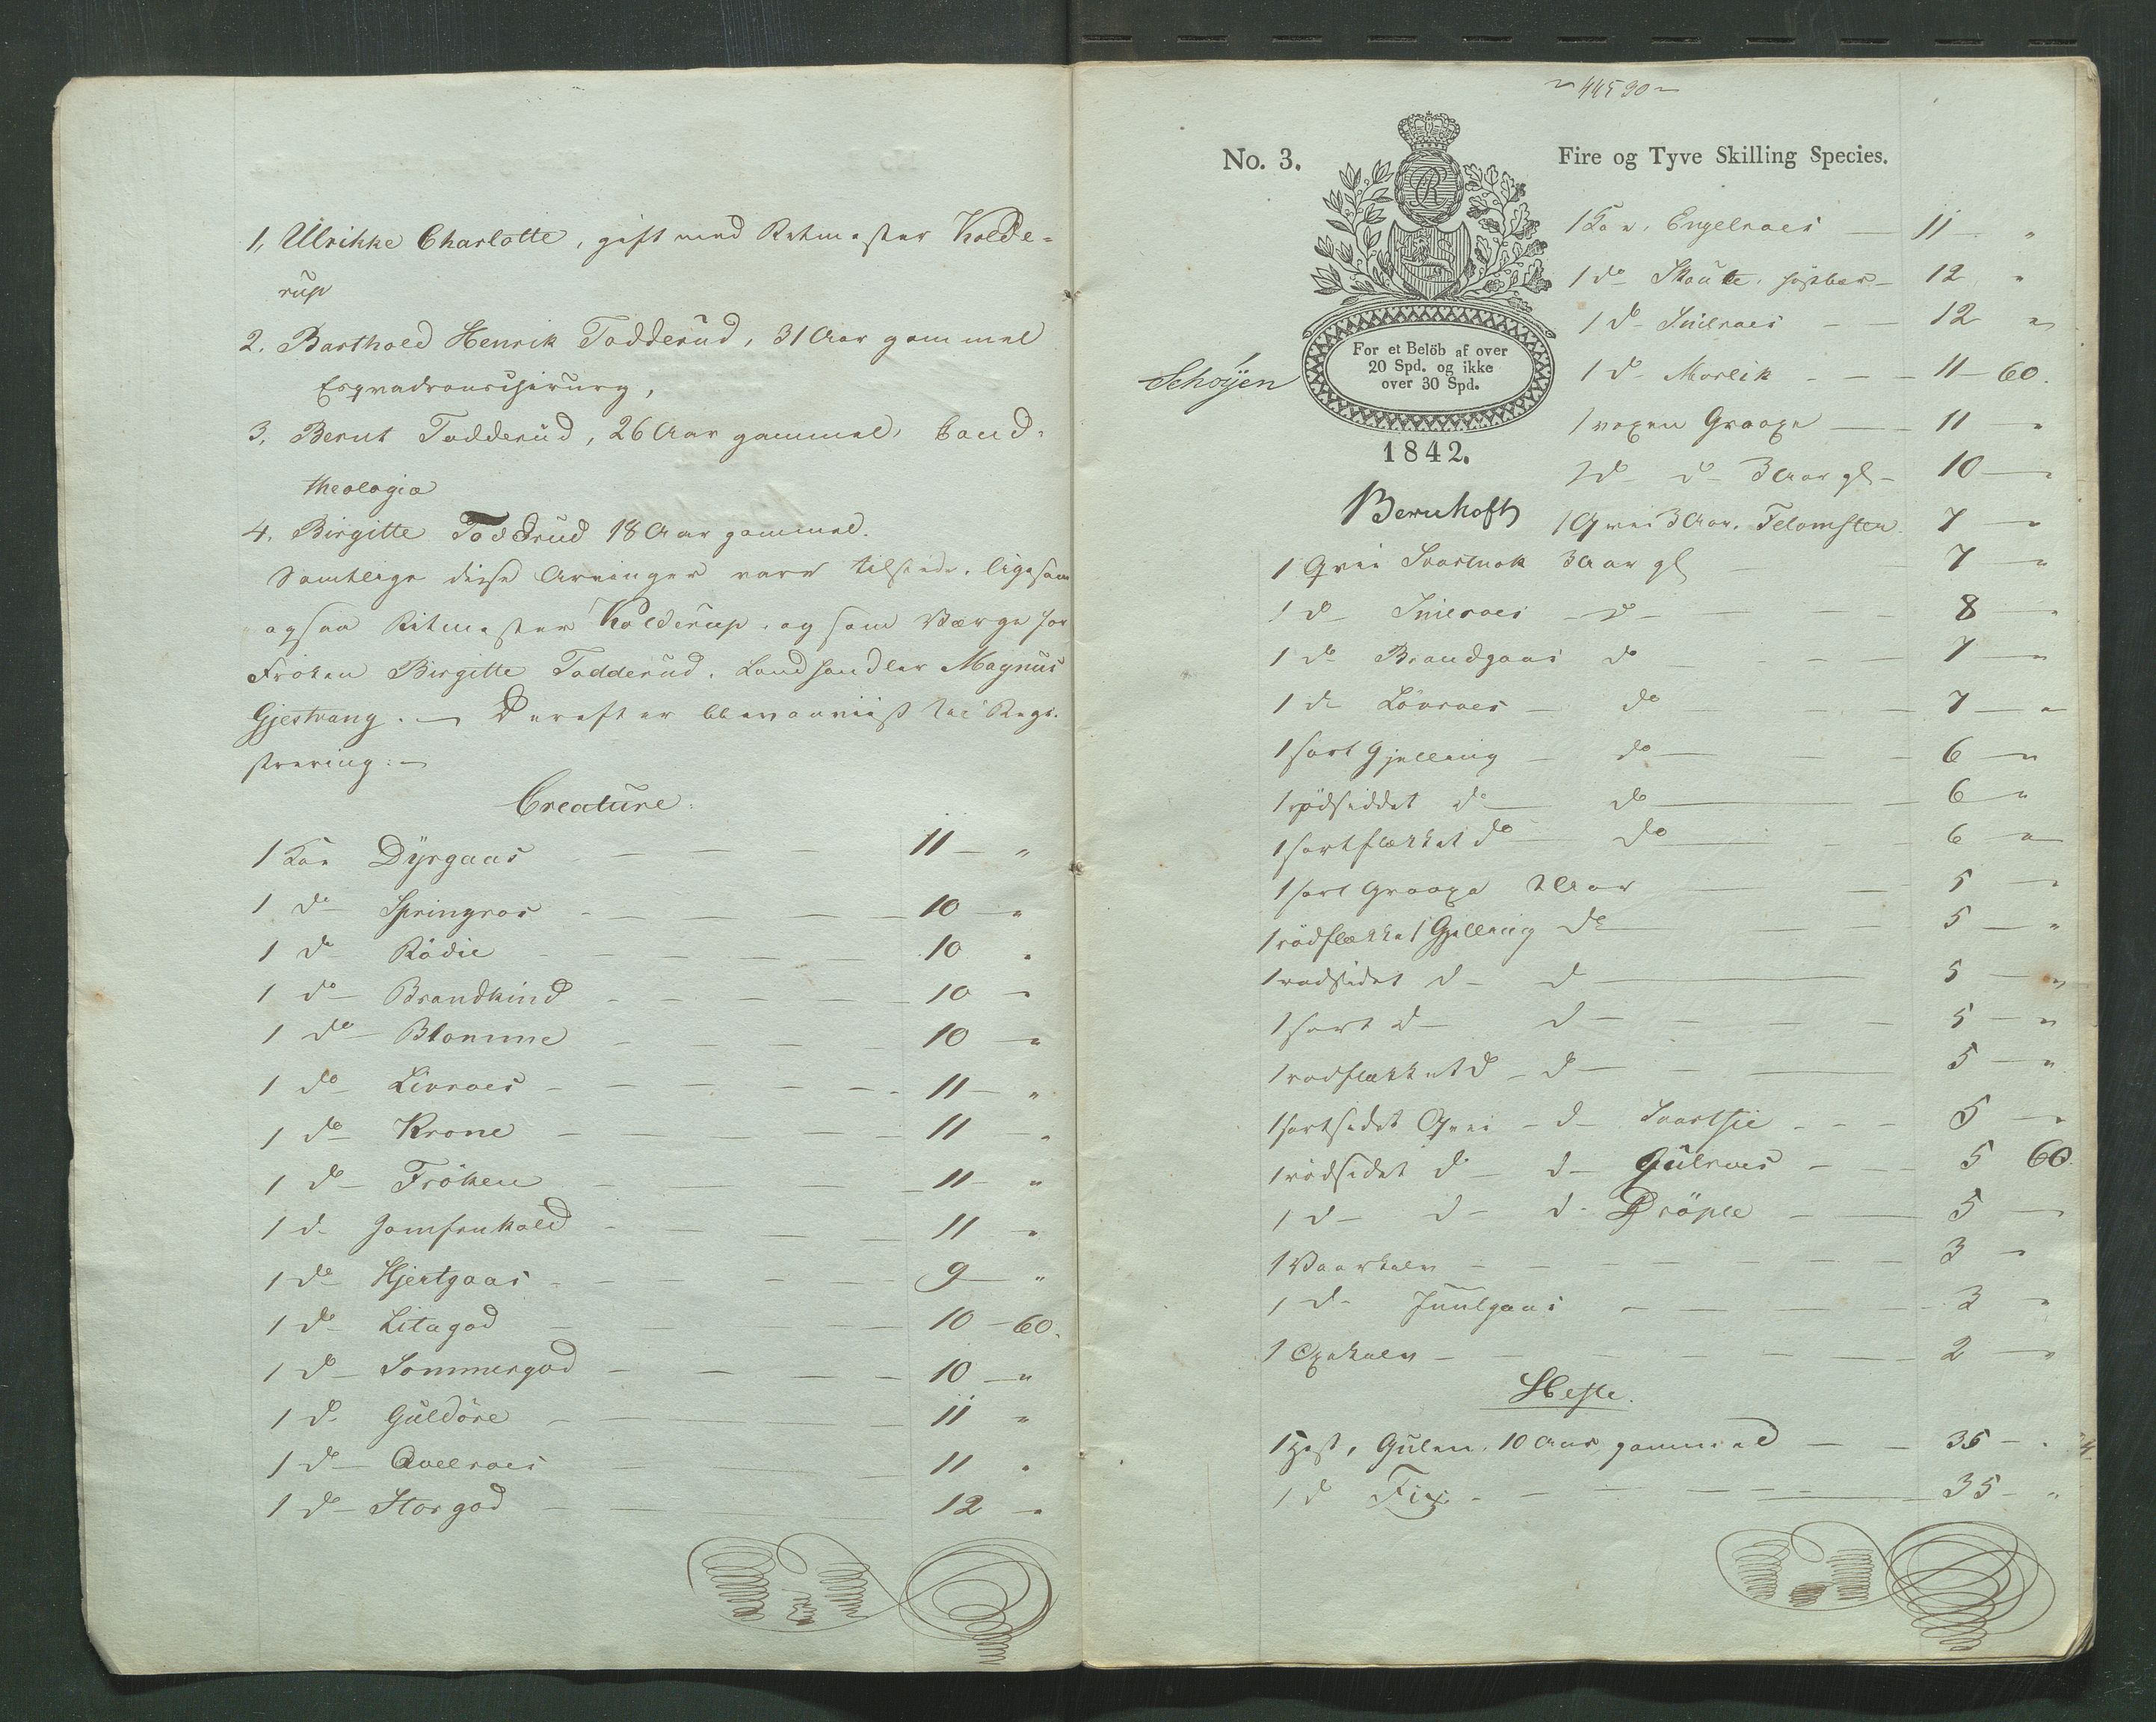 1, Ulrikke Charlotte, gift med Ritmester Kolde-
rup
2. Barthold Henrik Todderud, 31 Aar gammel
Esqvadronschirurg,
3. Bernt Todderud, 26 Aar gammel, Cand.
theologia
4. Birgitte Toddrud 18 Aar gammel.
Samtlige disse Arvinger vare tilstede, ligesom
ogsaa Ritmester Kolderup, og som Værge for
Frøken Birgitte Todderud, Landhandler Magnus
Gjestvang. — Derefter blev anviist til Regi-
strering: —
Creature:
1 Koe Dyrgaas — 11 — "
1 do Springros — 10 — "
1 do Rödie — 10 "
1 do Brandkind — 10 — "
1 do Blomme — 10 — "
1 do Livroes — 11 — "
1 do Krone — 11 — "
1 do Fröken — 11 — "
1 do Jomfrukold — 11 — "
1 do Hjertgaas — 9 — "
1 do Litagod — 10 — 60.
1 do Sommergod — 10 — "
1 do Guldöre — 11 "
1 do Qvelroes — 11 "
1 do Storgod — 12 — "
~ 44590 ~
No. 3.
Fire og Tyve Skilling Species.
For et Belöb af over
20 Spd. og ikke
over 30 Spd.
1842.
Schøyen
Bernhoft
1 Koe, Engelroes — 11 — "
1 do Skaute, — 12 "
1 do Smelroes — 12 "
1 do Morlik — 11 — 60.
1 voxen Graaxe — 11 — "
1 do do 3 Aar gl — 10 — "
1 Qvie 3 Aar, 7 — "
1 Qvie Svartnok 3 Aar gl 7 — "
1 do Smelroes do 8 — "
1 do Brandgaas do 7 — "
1 do Lövroes — do 7 — "
1 sort Gjelling — do 6 — "
1 rödsiddet do do 6 — "
1 sortflækket do do 6 — "
1 sort Graaxe 2 Aar 5 — "
1 rödflækket Gjelling do 5 — "
1 rödsidet do — do 5 — "
1 sort do — do 5 — "
1 rodflækket do — do 5 — "
1 sortsidet Qvie — do Svartsie — 5 — "
1 rödsidet do — do Gulroes — 5 60
1 do — do — do Dröple — 5 —
1 Vaarkalv — 3 — "
1 do Juulgaas — 3 "
1 Oxekalv — 2 — "
Heste.
1 Hest, Gulen, 10 Aar gammel — 35 — "
1 do Fix — 35 — "